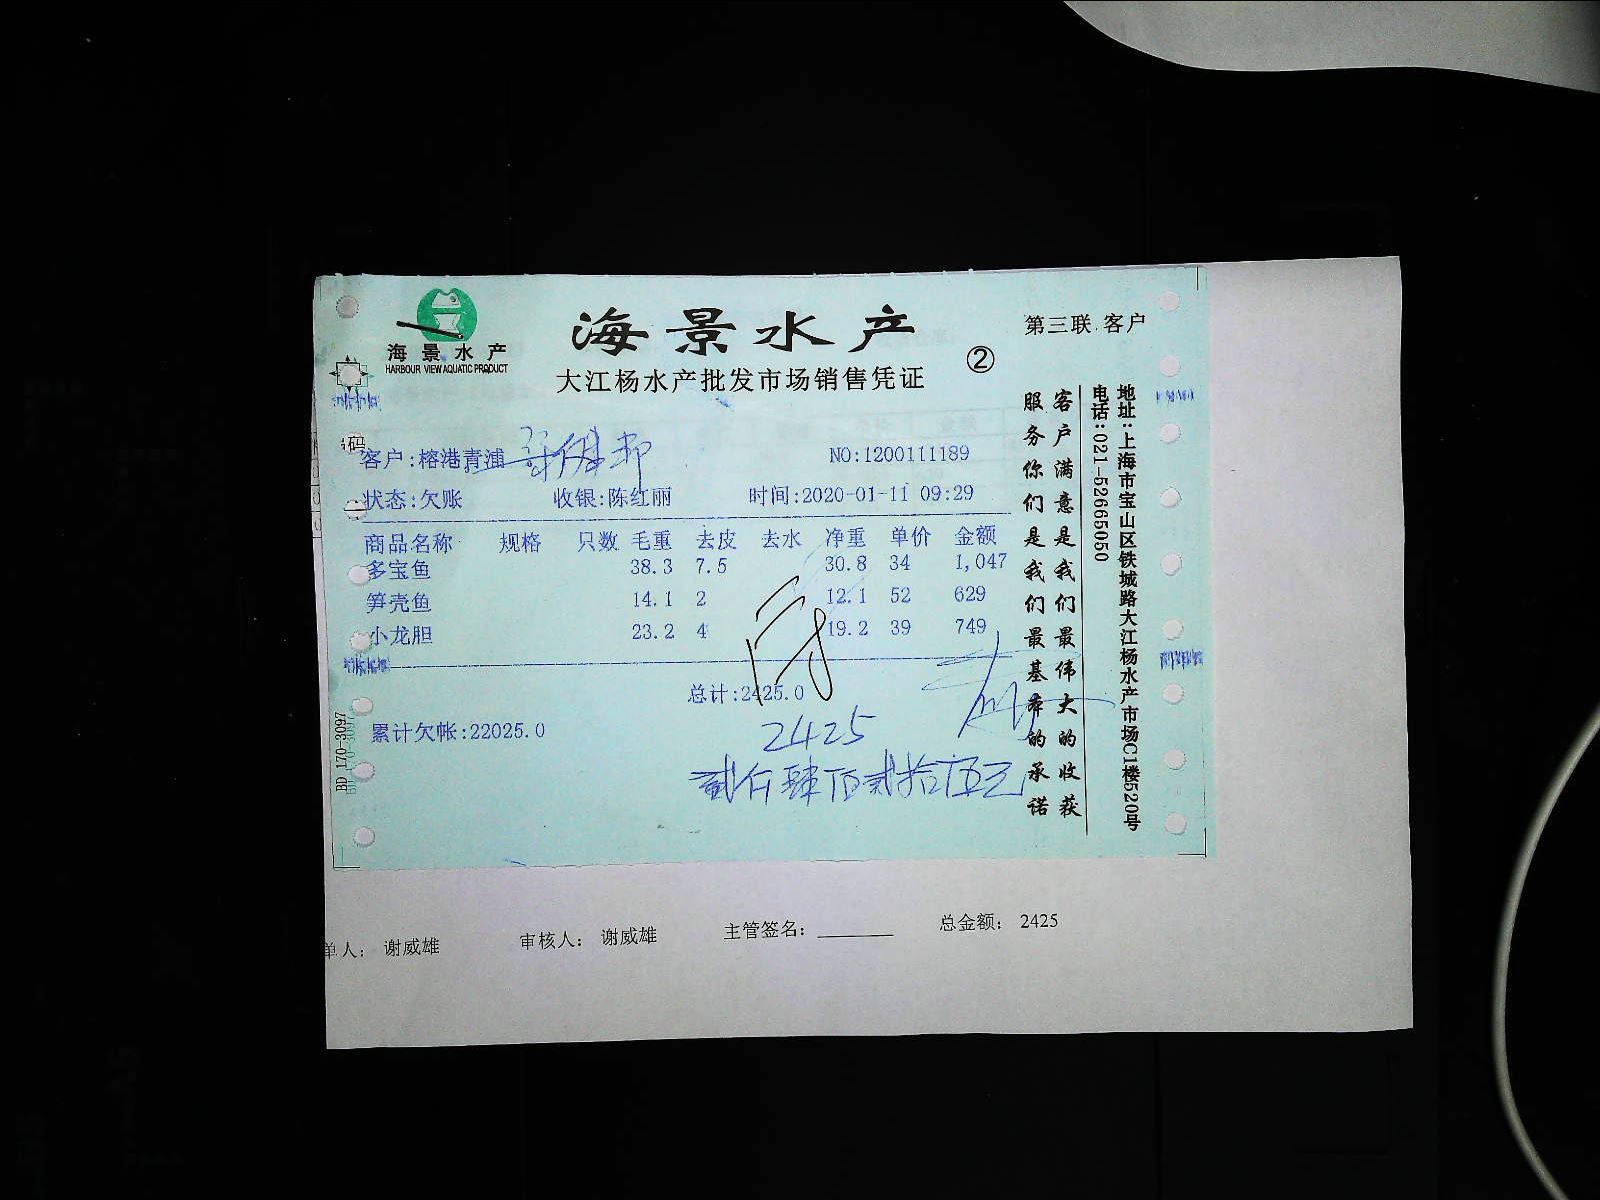 海景水产
HARBOUR VIEW AQUATIC PRODUCT
海景水产
大江杨水产批发市场销售凭证
②
第三联 客户
码
客户:榕港青浦
NO:1200111189
状态:欠账 收银:陈红丽 时间:2020-01-11 09:29
商品名称 规格 只数 毛重 去皮 去水 净重 单价 金额
多宝鱼 38.3 7.5 30.8 34 1,047
笋壳鱼 14.1 2 12.1 52 629
小龙胆 23.2 4 19.2 39 749
总计:2425.0
累计欠帐:22025.0
2425
贰仟肆佰贰拾伍元
客户满意是我们最伟大的收获
服务你们是我们最基本的承诺
地址:上海市宝山区铁城路大江杨水产市场C1楼520号
电话:021-52665050
BD 170-3097
单人: 谢威雄 审核人: 谢威雄 主管签名: 总金额: 2425